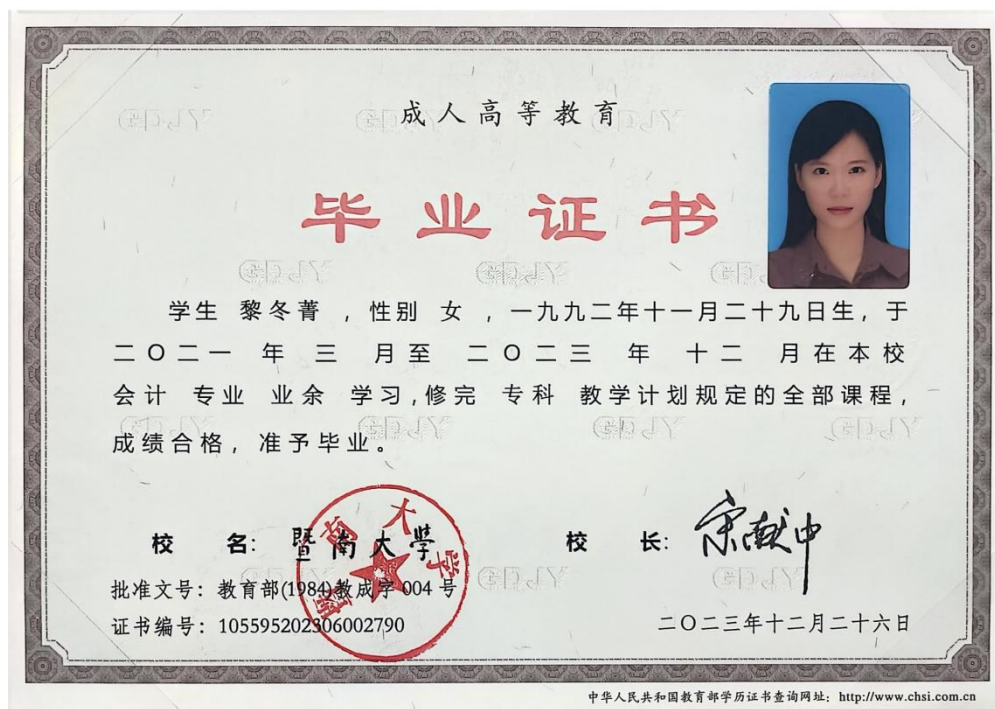 成人高等教育
毕业证书
学生 黎冬菁 ，性别 女 ，一九九二年十一月二十九日生，于
二〇二一 年 三 月至 二〇二三 年 十二 月在本校
会计 专业 业余 学习，修完 专科 教学计划规定的全部课程，
成绩合格，准予毕业。
校 名： 暨南大学
暨南大学
校 长： 宋献中
批准文号：教育部(1984)教成字 004 号
证书编号：105595202306002790
二〇二三年十二月二十六日
中华人民共和国教育部学历证书查询网址：http://www.chsi.com.cn